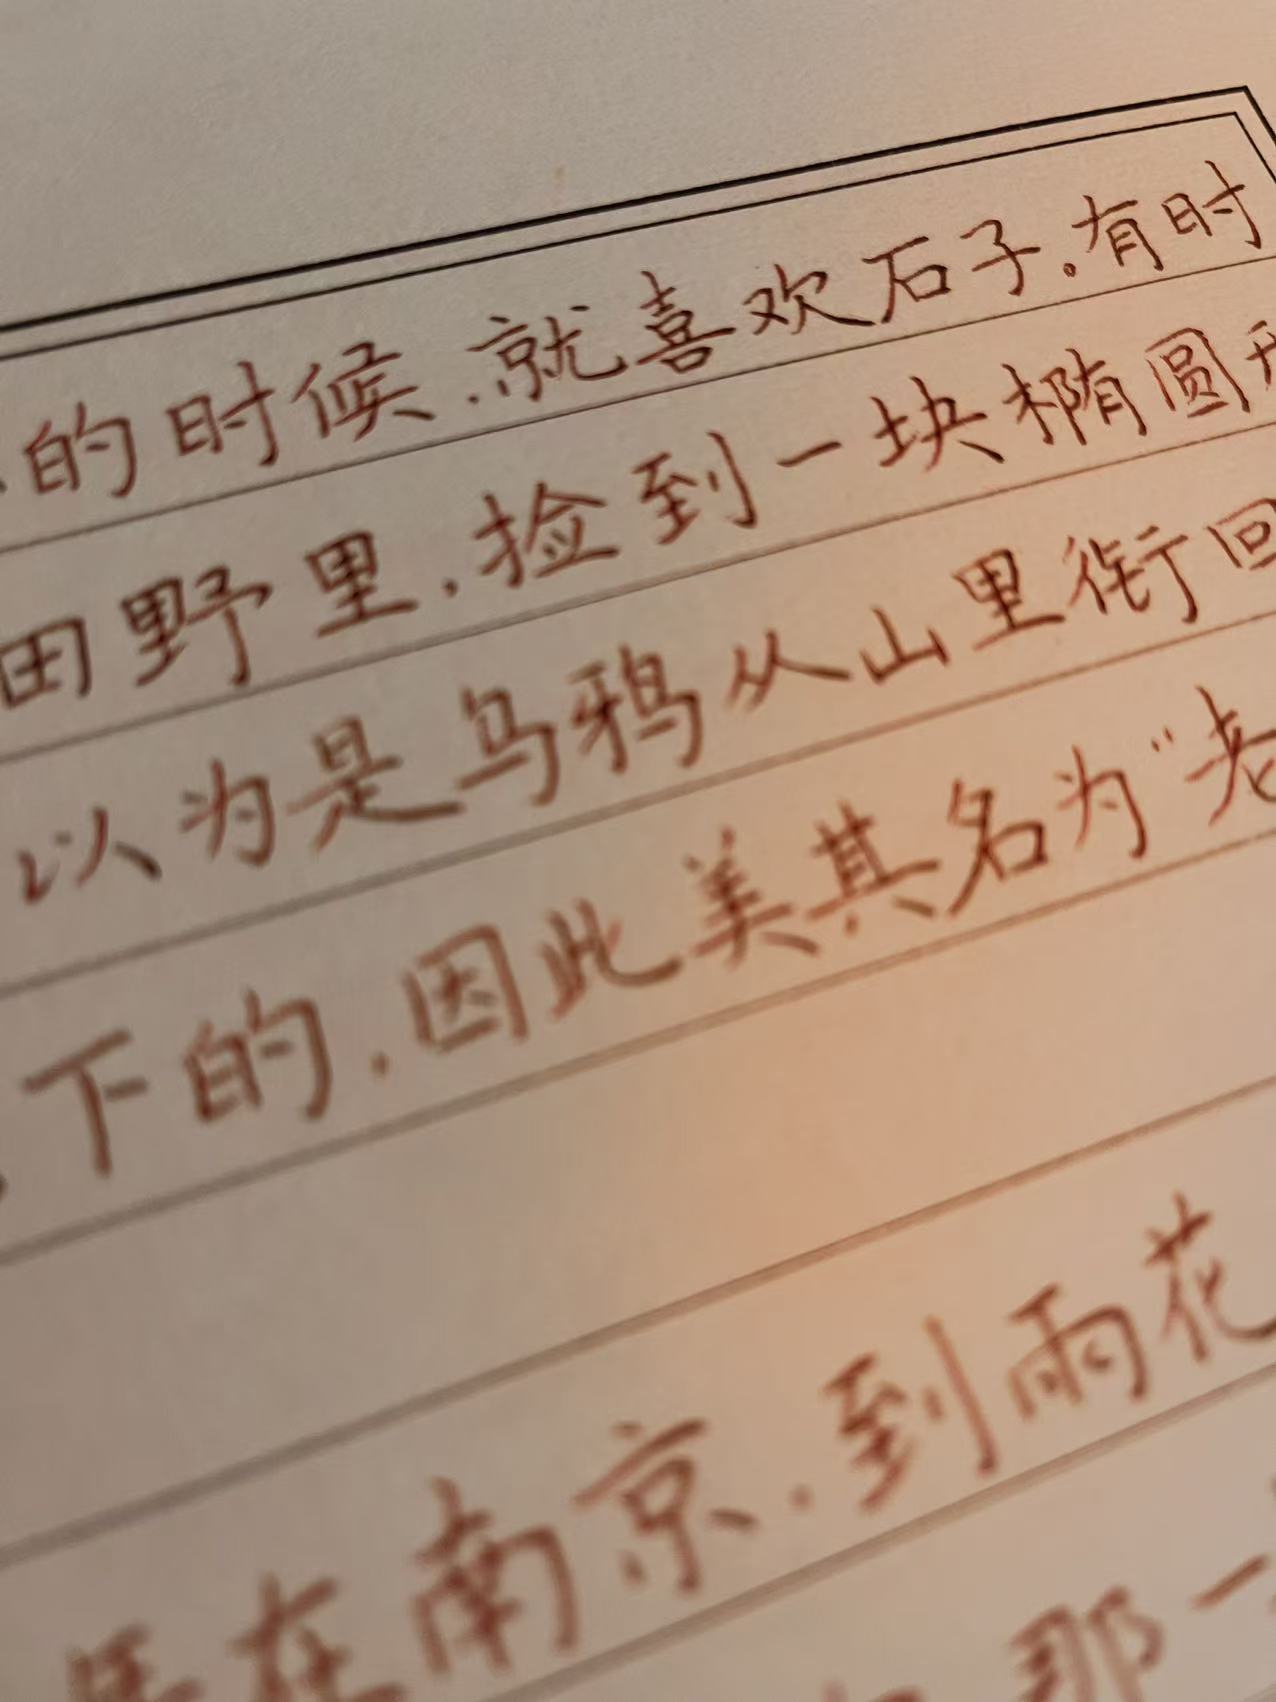 的时候.就喜欢石子。有时
田野里.捡到一块椭圆
以为是乌鸦从山里衔回
下的.因此美其名为“老
在南京.到雨花
那一